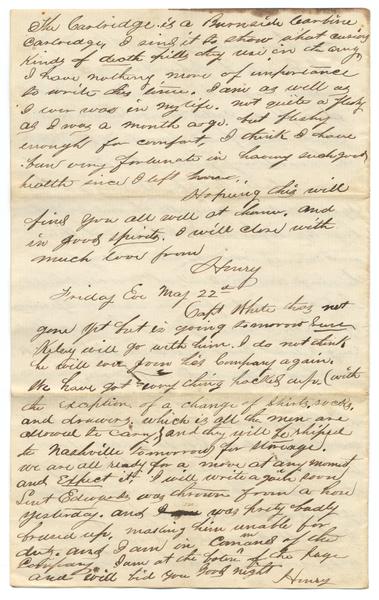 The Cartridge is a Burnside Carbine
Cartridge, I send it to show what curious
kinds of death pills they use in the army
I have nothing more of importance
to write this time. I am as well as
I ever was in my life. not quite a fleshy
as I was a month ago. but fleshy
enough for comfort, I think I have
been very fortunate in having such good
health since I left home.
Hopeing this will
find you all well at home. and
in good spirits. I will close with
much love from
Henry
Friday Eve May 22nd
Capt White has not
gone yet but is going tomorrow
will go with him. I do not think
he will ever join his Company again.
We have got every thing packed up. (with
the exception of a change of shirts, socks,
and drawers, which is all the men are
allowed to carry) and they will be shiped
to Nashville tomorrow for storage.
we are all ready for a move at any moment
and Expect it. I will write again soon
Leut Edwards was thrown from a horse
yesterday. and was prety badly
brused up, making him unable for
duty. and I am in comand of the
Company. I am at the botom of the page
and will bid you Good night
Henry